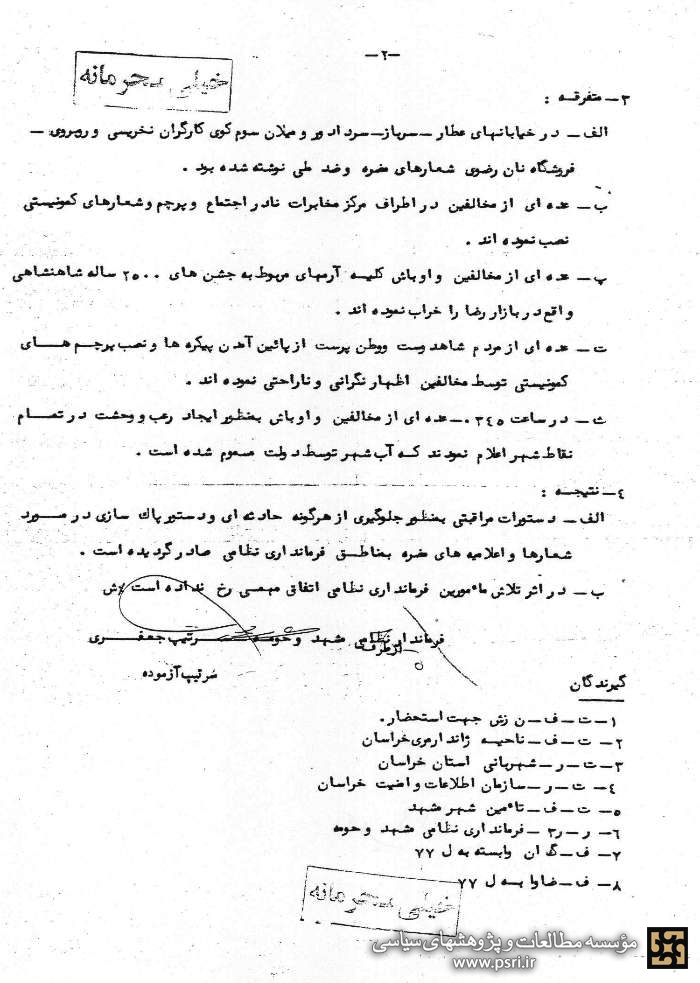 -۲-
خیلی محرمانه
۳- متفرقه :
الف - در خیابانهای عطار - سرباز - سردادور و میلان سوم کوی کارگران نخریسی و روبروی -
فروشگاه نان رضوی شعارهای مضره وضد ملی نوشته شده بود .
ب - عده ای از مخالفین در اطراف مرکز مخابرات نادر اجتماع و پرچم و شعارهای کمونیستی
نصب نموده اند .
پ - عده ای از مخالفین و اوباش کلیه آرمهای مربوط به جشن های ۲۵۰۰ ساله شاهنشاهی
واقع در بازار رضا را خراب نموده اند .
ت - عده ای از مردم شاهدوست ووطن پرست از پائین آمدن پیکره ها و نصب پرچم های
کمونیستی توسط مخالفین اظهار نگرانی و ناراحتی نموده اند .
ث - در ساعت ۰۳۴۵ - عده ای از مخالفین و اوباش بمنظور ایجاد رعب و وحشت در تمام
نقاط شهر اعلام نمودند که آب شهر توسط دولت مسموم شده است .
۴- نتیجه :
الف - دستورات مراقبتی بمنظور جلوگیری از هرگونه حادثه ای و دستور پاک سازی در مورد
شعارها و اعلامیه های مضره بمناطق فرمانداری نظامی صادر گردیده است .
ب - در اثر تلاش مأمورین فرمانداری نظامی اتفاق مهمی رخ نداده است
فرماندار نظامی مشهد و حومه سرتیپ جعفری
از طرف
سرتیپ آزموده
گیرندگان
۱- ت - ف - ن زش جهت استحضار .
۲- ت - ف - ناحیه ژاندارمری خراسان
۳- ت - ر - شهربانی استان خراسان
۴- ت - ر - سازمان اطلاعات و امنیت خراسان
۵- ت - ف - تأمین شهر مشهد
۶- ر - ر۳ - فرمانداری نظامی مشهد و حومه
۷- ف - گ ان وابسته به ل ۷۷
۸- ف - ضاوا به ل ۷۷
خیلی محرمانه
مؤسسه مطالعات و پژوهشهای سیاسی
www.psri.ir